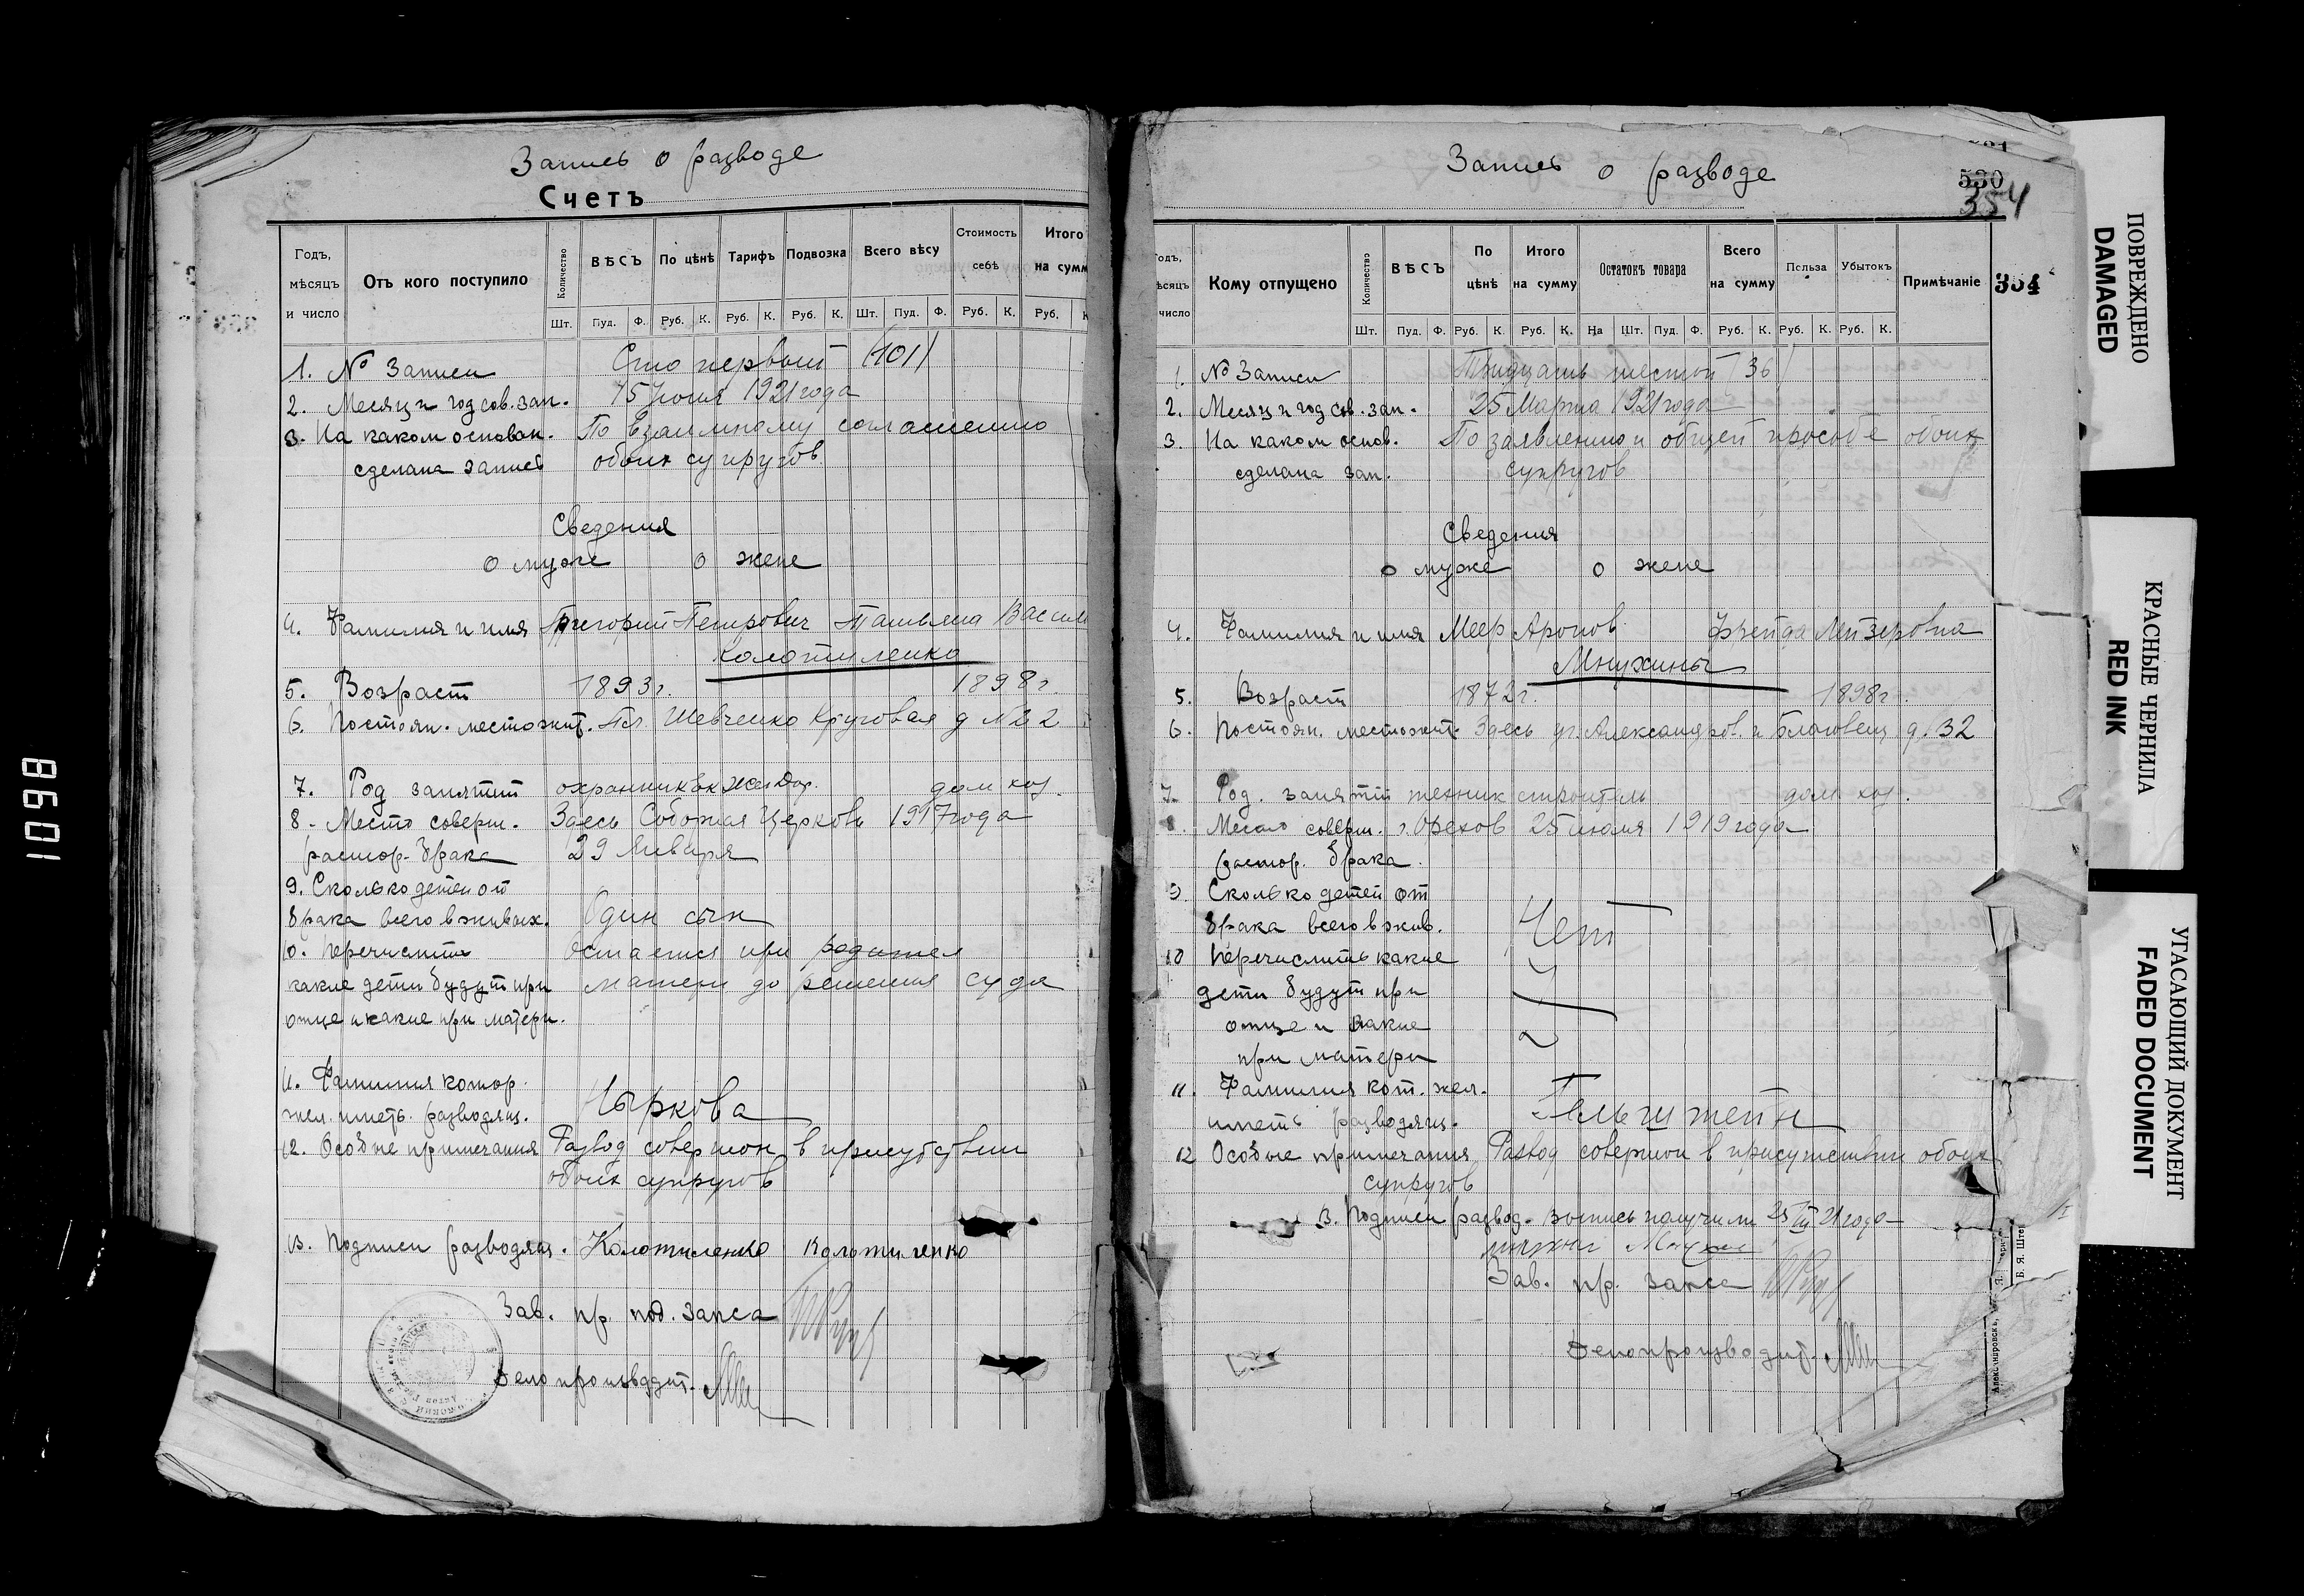 Запись о разводе
Счетъ
Годъ, мѣсяцъ и число
Отъ кого поступило
Количество
ВѢСЪ
По цѣнѣ
Тарифъ
Подвозка
Всего вѣсу
Стоимость себѣ
Итого на сумм
Шт. Пуд. Ф. Руб. К. Руб. К. Руб. К. Шт. Пуд. Ф. Руб. К. Руб. К
1. № Записи Сто первый (101)
2. Месяц и год сов. зап. 15 Июня 1921 года
3. На каком основан. По взаимному соглашению
сделана запись обоих супругов
Сведения
о муже о жене
4. Фамилия и имя Григорий Петрович Татьяна Васил
Колотиленко
5. Возраст 1893 г. 1898 г.
6. Постоян. местожит. Шевченко Круговая д № 2
7. Род занятий охранник жел дор. дом хоз.
8. Место соверш. Здесь Соборная Церковь 1917 года
растор. брака 29 Января
9. Сколько детей от
брака всего в живых. Один сын
10. Перечислить остается при родител
какие дети будут при матери до решения суда
отце и какие при матери.
11. Фамилия котор.
жел. иметь разводящ. Чыркова
12. Особые примечания Развод совершон в присутствии
обоих супругов
13. Подписи разводящ. Колотиленко Колотиленко
Зав. пр. под. загса
Делопроизводит.
Запись о разводе
530
354
Годъ, мѣсяцъ число
Кому отпущено
Количество
ВѢСЪ
По цѣнѣ
Итого на сумму
Остатокъ товара
Всего на сумму
Польза
Убытокъ
Примѣчаніе
354
Шт. Пуд. Ф. Руб. К. Руб. К. На Шт. Пуд. Ф. Руб. К. Руб. К. Руб. К.
1. № Записи Тридцать шестой (36)
2. Месяц и год сов. зап. 25 Марта 1921 года
3. На каком основ. По заявлению и общей прособе обоих
сделана зап. супругов
Сведения
о муже о жене
4. Фамилия и имя Меер Аронов Фрейда Лейзеровна
Мнухины
5. Возраст 1872 г. 1898 г.
6. Постоян. местожит. Здесь уг. Александров. и Благовещ д. 32
7. Род. занятий техник строитель дом. хоз.
8. Место соверш. г. Орехов 25 июля 1919 года
растор. брака.
9 Сколько детей от
брака всего в жив. Нет
10 Перечислить какие
дети будут при
отце и какие
при матери
11. Фамилия кот. жел.
иметь разводящ. Гельштейн
12 Особые примечания Развод совершон в присутствии обоих
супругов
13. Подписи развод. выпись получили 25/III 21 года
Зав. пр. загса
Делопроизводит.
Александровскъ,
ПОВРЕЖДЕНО
DAMAGED
КРАСНЫЕ ЧЕРНИЛА
RED INK
УГАСАЮЩИЙ ДОКУМЕНТ
FADED DOCUMENT
1098